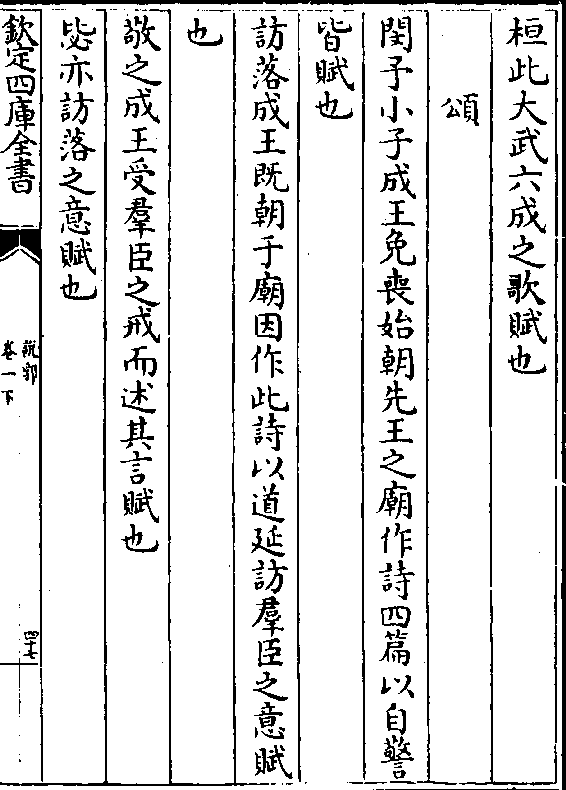 桓此大武六成之歌賦也
頌
閔予小子成王免喪始朝先王之廟作詩四篇以自警
皆賦也
訪落成王既朝于廟因作此詩以道延訪羣臣之意賦
也
敬之成王受羣臣之戒而述其言賦也
毖亦訪落之意賦也
欽定四庫全書
說郛
卷一下
四十七